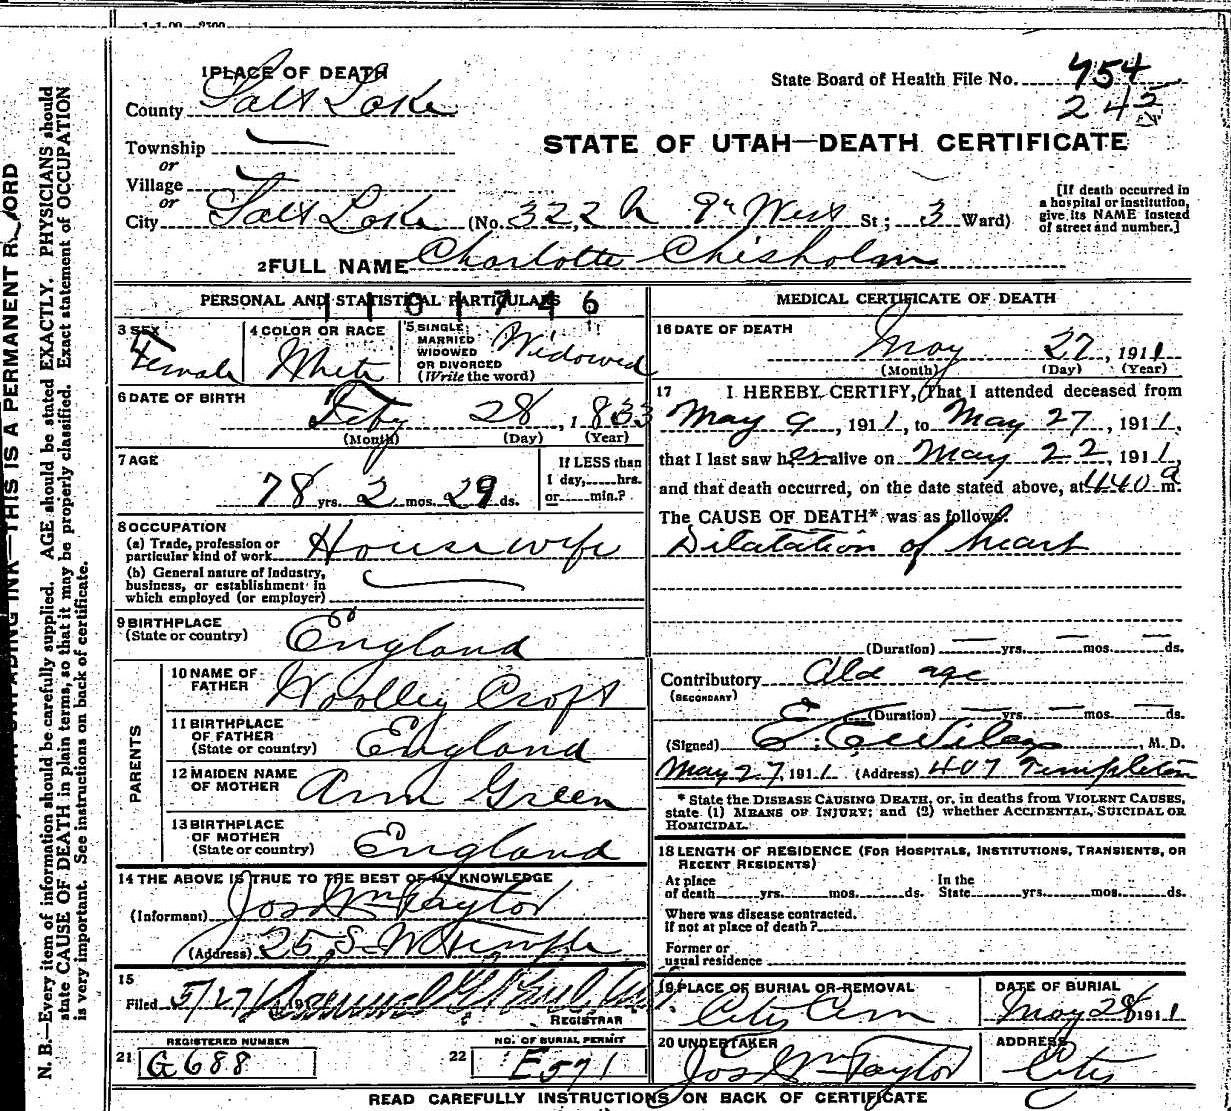 1 PLACE OF DEATH
County Salt Lake
Township
or
Village
or
City Salt Lake (No. 322 N 9th West St; 3 Ward)
State Board of Health File No. 454
245
STATE OF UTAH—DEATH CERTIFICATE
[If death occurred in
a hospital or institution,
give its NAME instead
of street and number.]
2 FULL NAME Charlotte Chisholm
PERSONAL AND STATISTICAL PARTICULARS
3 SEX
Female
4 COLOR OR RACE
White
5 SINGLE,
MARRIED
WIDOWED
OR DIVORCED
(Write the word)
Widowed
6 DATE OF BIRTH
Feby 28, 1833
(Month) (Day) (Year)
7 AGE
78 yrs. 2 mos. 29 ds.
If LESS than
1 day, hrs.
or min.?
8 OCCUPATION
(a) Trade, profession or
particular kind of work Housewife
(b) General nature of Industry,
business, or establishment in
which employed (or employer)
9 BIRTHPLACE
(State or country)
England
PARENTS
10 NAME OF
FATHER
Woolley Croft
11 BIRTHPLACE
OF FATHER
(State or country)
England
12 MAIDEN NAME
OF MOTHER
Ann Green
13 BIRTHPLACE
OF MOTHER
(State or country)
England
14 THE ABOVE IS TRUE TO THE BEST OF MY KNOWLEDGE
(Informant) Jos Wm Taylor
(Address) 25 S. W Temple
15
Filed 5/27 191
REGISTRAR
REGISTERED NUMBER
21 G688
NO. OF BURIAL PERMIT
22 E571
MEDICAL CERTIFICATE OF DEATH
16 DATE OF DEATH
May 27, 1911
(Month) (Day) (Year)
17 I HEREBY CERTIFY, That I attended deceased from
May 9, 1911, to May 27, 1911,
that I last saw her alive on May 22, 1911,
and that death occurred, on the date stated above, at 440 a m.
The CAUSE OF DEATH* was as follows:
Dilatation of heart
(Duration) yrs. mos. ds.
Contributory Old age
(SECONDARY)
(Duration) yrs. mos. ds.
(Signed) , M. D.
May 27, 1911 (Address) 407 Templeton
* State the DISEASE CAUSING DEATH, or, in deaths from VIOLENT CAUSES,
state (1) MEANS OF INJURY; and (2) whether ACCIDENTAL, SUICIDAL OR
HOMICIDAL.
18 LENGTH OF RESIDENCE (FOR HOSPITALS, INSTITUTIONS, TRANSIENTS, OR
RECENT RESIDENTS)
At place
of death yrs. mos. ds.
In the
State yrs. mos. ds.
Where was disease contracted.
If not at place of death?
Former or
usual residence
19 PLACE OF BURIAL OR REMOVAL
City Cem
DATE OF BURIAL
May 28 1911
20 UNDERTAKER
Jos Wm Taylor
ADDRESS
City
READ CAREFULLY INSTRUCTIONS ON BACK OF CERTIFICATE
INK—THIS IS A PERMANENT
N. B.—Every item of information should be carefully supplied. AGE should be stated EXACTLY. PHYSICIANS should
state CAUSE OF DEATH in plain terms, so that it may be properly classified. Exact statement of OCCUPATION
is very important. See instructions on back of certificate.